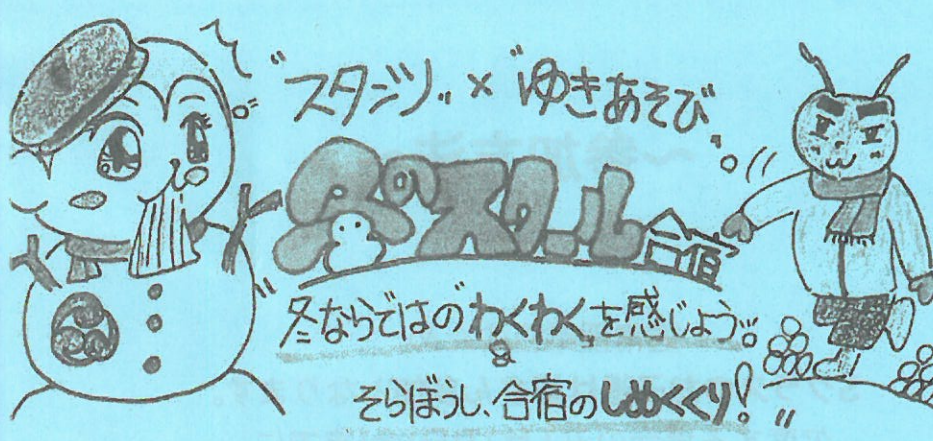 "スタンツ"×"ゆきあそび"
冬のスクール合宿
冬ならではのわくわくを感じよう!!
&
そらぼうし、合宿のしめくくり!!